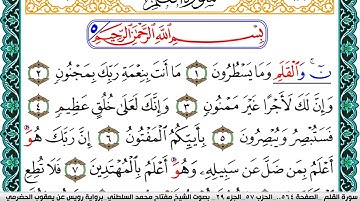 سورة القلم
بِسْمِ اللَّهِ الرَّحْمَٰنِ الرَّحِيمِ
نٓ وَالْقَلَمِ وَمَا يَسْطُرُونَ ١ مَا أَنتَ بِنِعْمَةِ رَبِّكَ بِمَجْنُونٍ ٢
وَإِنَّ لَكَ لَأَجْرًا غَيْرَ مَمْنُونٍ ٣ وَإِنَّكَ لَعَلَىٰ خُلُقٍ عَظِيمٍ ٤
فَسَتُبْصِرُ وَيُبْصِرُونَ ٥ بِأَييِّكُمُ الْمَفْتُونُ ٦ إِنَّ رَبَّكَ هُوَ
أَعْلَمُ بِمَن ضَلَّ عَن سَبِيلِهِ وَهُوَ أَعْلَمُ بِالْمُهْتَدِينَ ٧ فَلَا تُطِعِ
سورة القلم الصفحة ٥٦٤.. الحزب ٥٧ الجزء ٢٩ بصوت الشيخ مفتاح محمد السلطني برواية رويس عن يعقوب الحضرمي